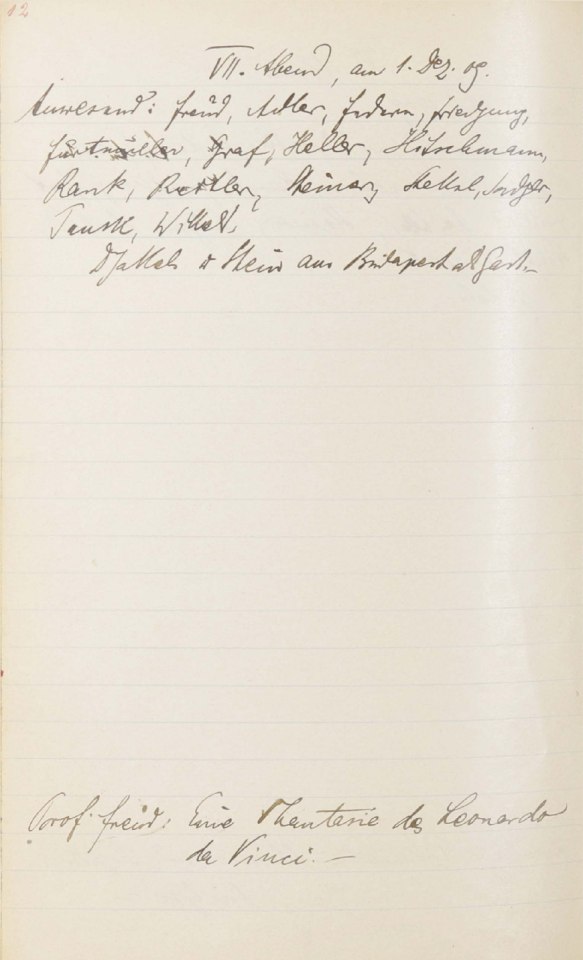 12
VII. Abend, am 1. Dez. 09.
Anwesend: Freud, Adler, Federn, Friedjung,
Furtmüller, Graf, Heller, Hitschmann,
Rank, Reitler, Steiner, Stekel, Sadger,
Tausk, Wittels.
D Jekels u Stein aus Budapest als Gast.–
Prof. Freud: Eine Phantasie des Leonardo
da Vinci. –